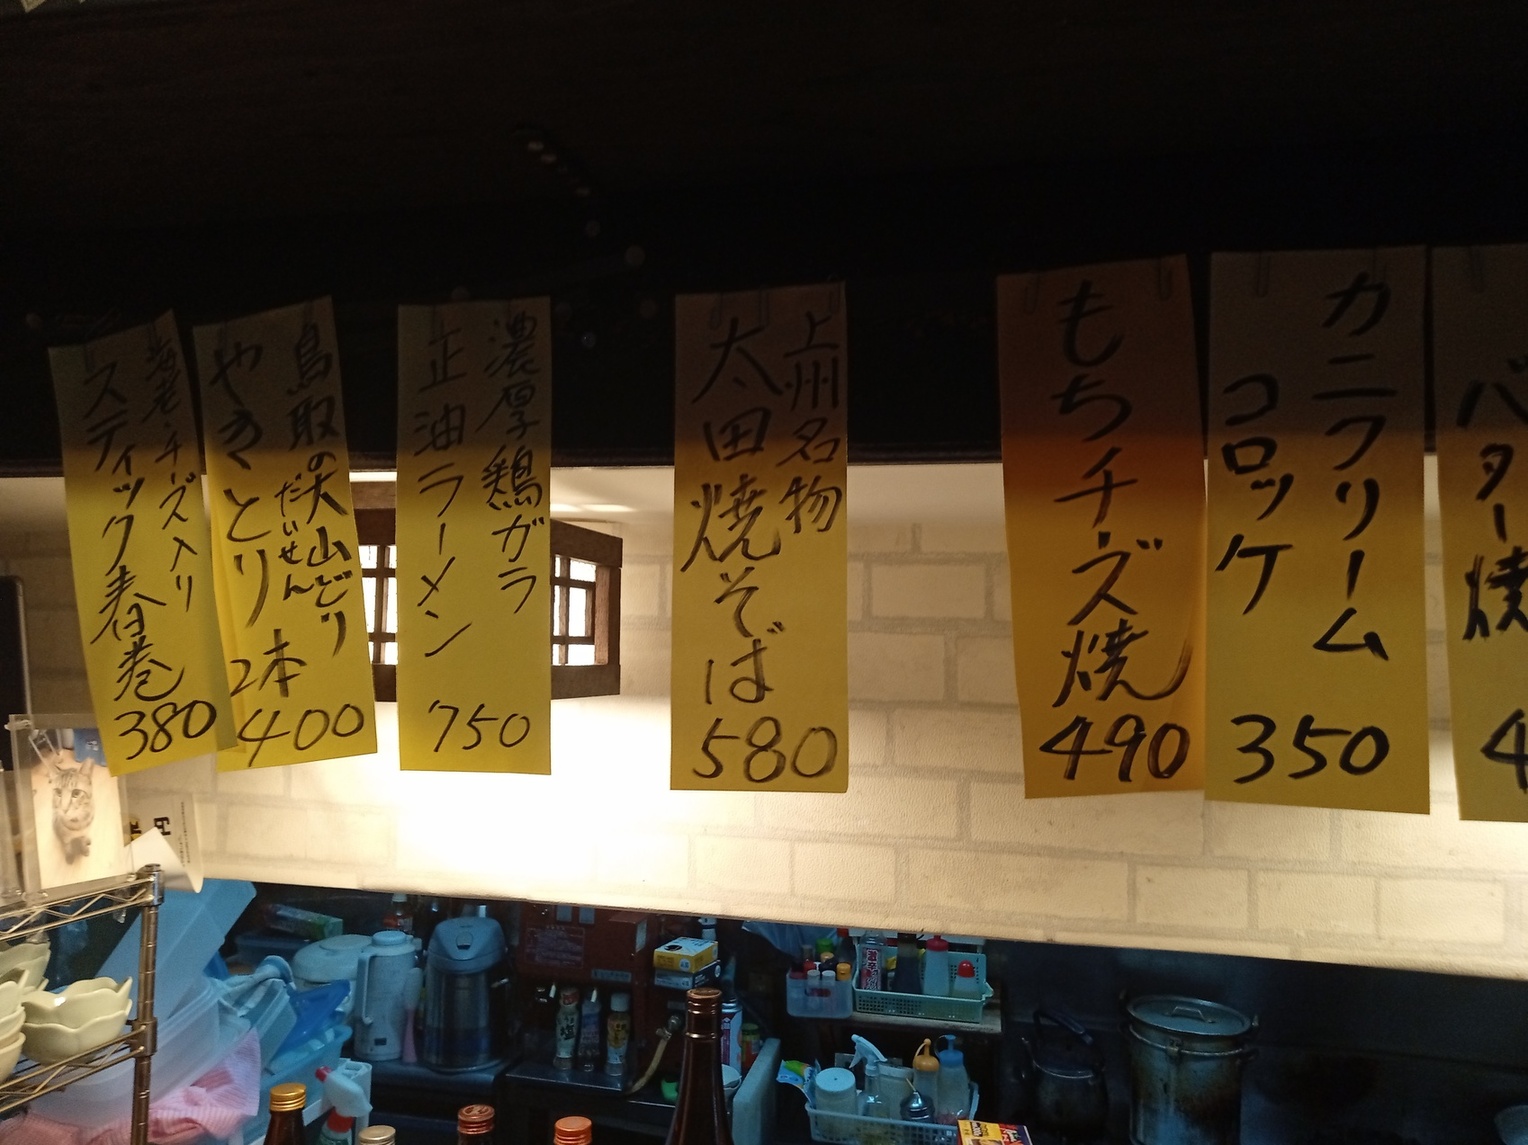 海老・チーズ入り
スティック春巻
380
鳥取の大山どり
だいせん
やきとり 2本
400
濃厚鶏ガラ
正油ラーメン
750
上州名物
太田焼そば
580
もちチーズ焼
490
カニクリーム
コロッケ
350
バター焼
4
激辛
塩